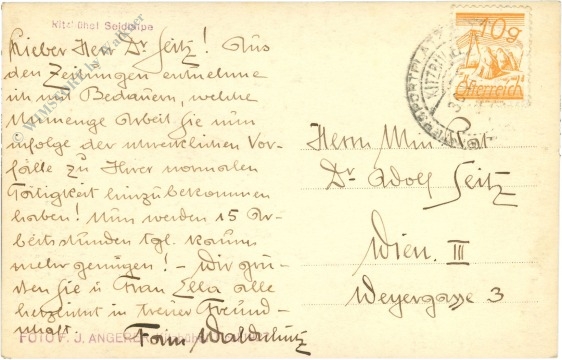 Kitzbühel Seidlalpe
Lieber Herr Dr Seitz! Aus
den Zeitungen entnehme
ich mit Bedauern, welche
Unmenge Arbeit Sie nun
infolge der unerquicklichen Vor-
fälle zu Ihrer normalen
Tätigkeit hinzubekommen
haben! Nun werden 15 Ar-
beitsstunden tgl. kaum
mehr genügen! – Wir grü-
ßen Sie u Frau Ella alle
herzlichst in treuer Freund-
schaft.
FOTO F. J. ANGERER
10g
Österreich
WINTERSPORTPLATZ
KITZBÜHEL
Herrn
Dr Adolf Seitz
Wien. III
Weyergasse 3